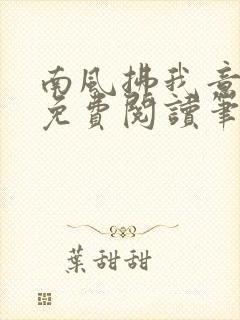 南風拂我意
免費閱讀筆
葉甜甜